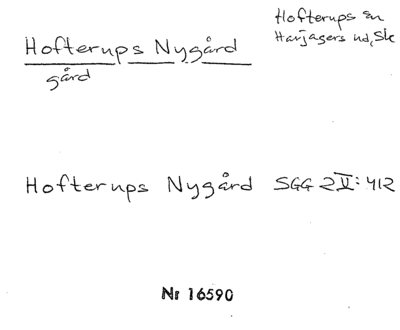 Hofterups Nygård
gård
Hofterups sn
Harjagers hd, Sk
Hofterups Nygård SGG 2 V: 412
Nr 16590